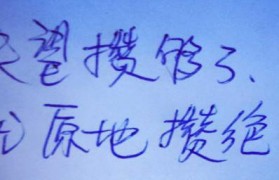 望攒够了、
原地攒绝